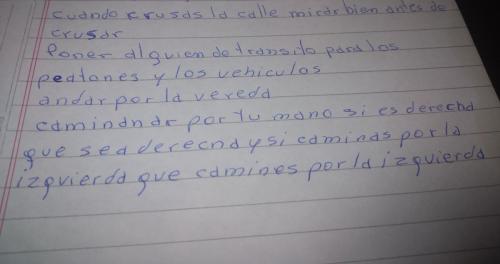 cuando crusas la calle mirar bien antes de
crusar
Poner alguien de transito para los
peatones y los vehiculos
andar por la vereda
caminanar por tu mano si es derecha
que sea derecha y si caminas por la
izquierda que camines por la izquierda